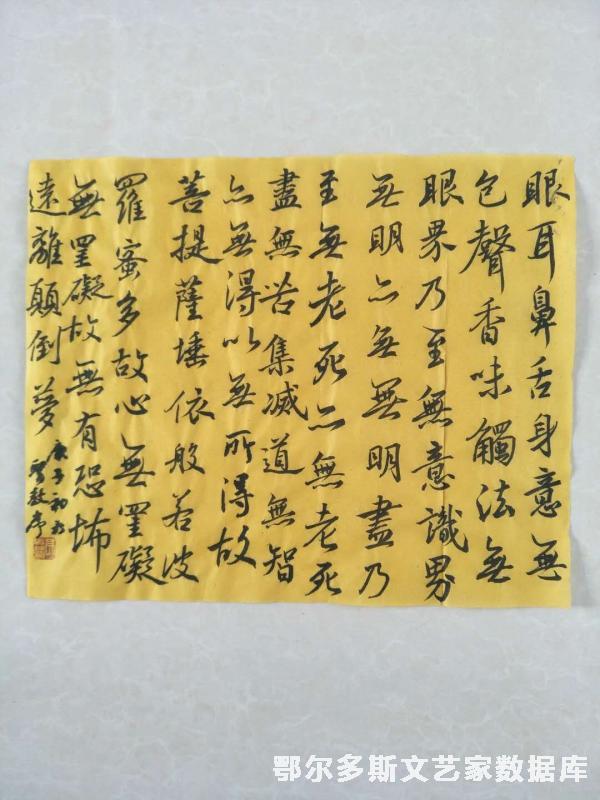 眼耳鼻舌身意無
色聲香味觸法無
眼界乃至無意識界
無明亦無無明盡乃
至無老死亦無老死
盡無苦集滅道無智
亦無得以無所得故
菩提薩埵依般若波
羅蜜多故心無罣礙
無罣礙故無有恐怖
遠離顛倒夢
庚子初
鄂尔多斯文艺家数据库